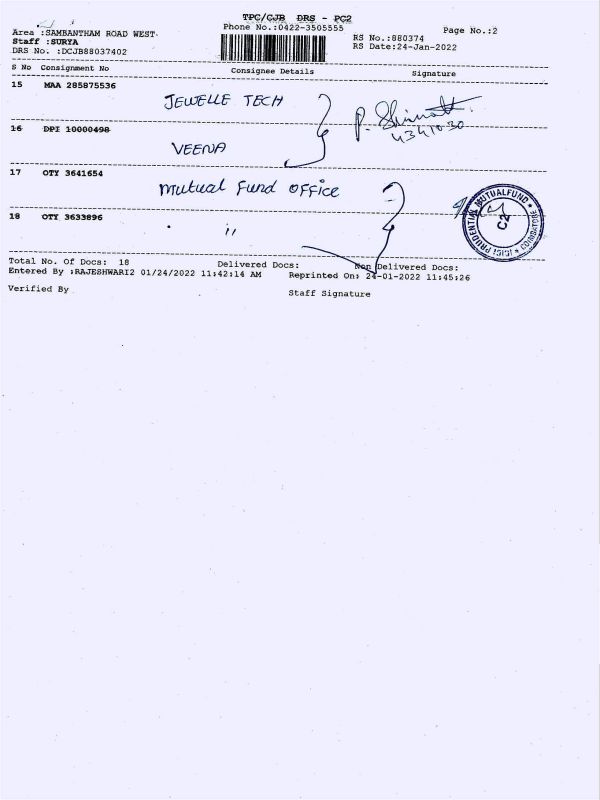 TPC/CJB DRS - PC2
Area :SAMBANTHAM ROAD WEST- Phone No.:0422-3505555 Page No.:2
Staff :SURYA RS No.:880374
DRS No. :DCJB88037402 RS Date:24-Jan-2022
S No Consignment No Consignee Details Signature
15 MAA 285875536 JEWELLE TECH
16 DPI 10000498 VEENA
17 OTY 3641654 mutual Fund OFFice
18 OTY 3633896 "
PRUDENTIAL MUTUALFUND * COIMBATORE * ICICI
C2
Total No. Of Docs: 18 Delivered Docs: Non Delivered Docs:
Entered By :RAJESHWARI2 01/24/2022 11:42:14 AM Reprinted On: 24-01-2022 11:45:26
Verified By Staff Signature